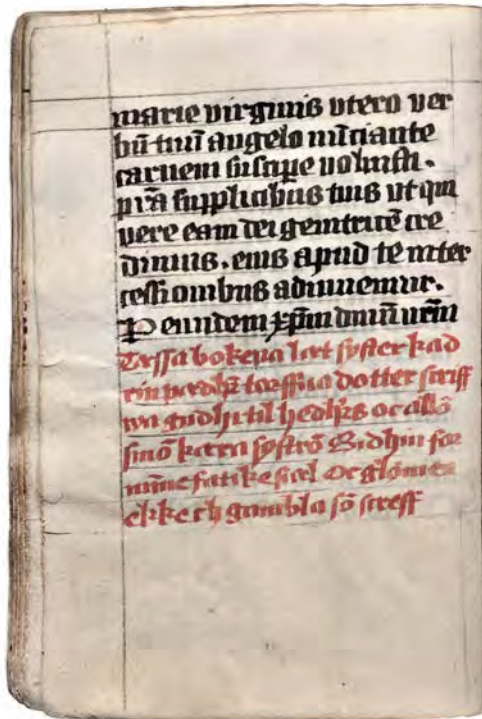 marie virginis vtero ver
bū tuū angelo nūciante
carnem suscipe voluisti.
p̄ta supplicibus tuis vt qui
vere eam dei genitricē cre
dimus. eius apud te inter
cessionibus adiuuemur.
P eundem xp̄m dnm̄ nrm̄
Tessa bokena lot syster kad
rin thorffina dotter scriff
wa gudhi til hedhrs oc allō
sinō kæra systrō Bidhin for
mīne fatike siæl Oc glōmen
ekke th gambla sō screff